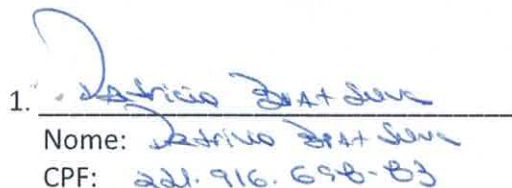 1. Patricia Silva
Nome: Patricia Silva
CPF: 221.916.698-83